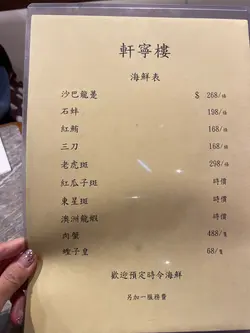 軒寧樓
海鮮表
沙巴龍躉 $ 268/條
石蚌 198/條
紅鮋 168/條
三刀 168/條
老虎斑 298/條
紅瓜子斑 時價
東星斑 時價
澳洲龍蝦 時價
肉蟹 488/隻
蟶子皇 68/隻
歡迎預定時令海鮮
另加一服務費